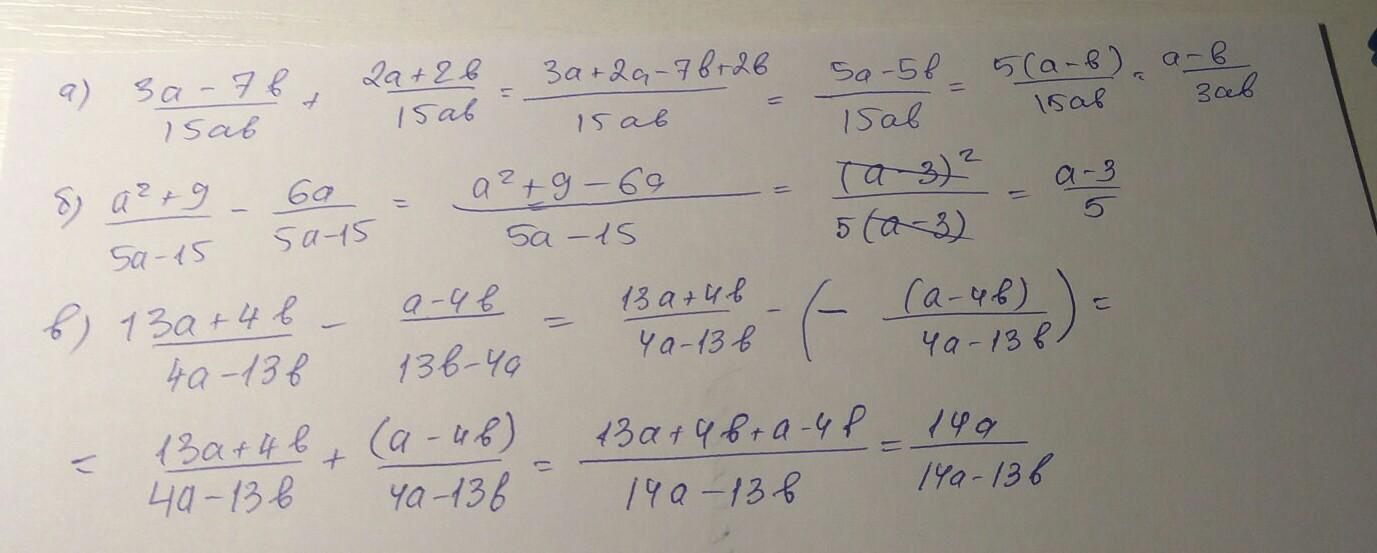 а) (3a-7b)/(15ab) + (2a+2b)/(15ab) = (3a+2a-7b+2b)/(15ab) = (5a-5b)/(15ab) = 5(a-b)/(15ab) = (a-b)/(3ab)
б) (a²+9)/(5a-15) - 6a/(5a-15) = (a²+9-6a)/(5a-15) = (a-3)²/(5(a-3)) = (a-3)/5
в) (13a+4b)/(4a-13b) - (a-4b)/(13b-4a) = (13a+4b)/(4a-13b) - (- (a-4b)/(4a-13b)) =
= (13a+4b)/(4a-13b) + (a-4b)/(4a-13b) = (13a+4b+a-4b)/(14a-13b) = 14a/(14a-13b)